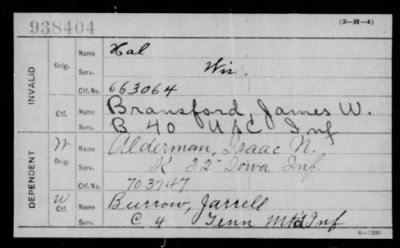 938404
(3-H-4)
INVALID
Orig. Name Hal
Serv. Wis.
Ctf. No. 663064
Ctf. Name Bransford, James W.
Serv. B 40 USC Inf
DEPENDENT
W Orig. Name Alderman, Isaac N.
Serv. K 32" Iowa Inf.
Ctf. No. 703747
W Ctf. Name Burrow, Jarrell
Serv. C 4 Tenn Mt'd Inf